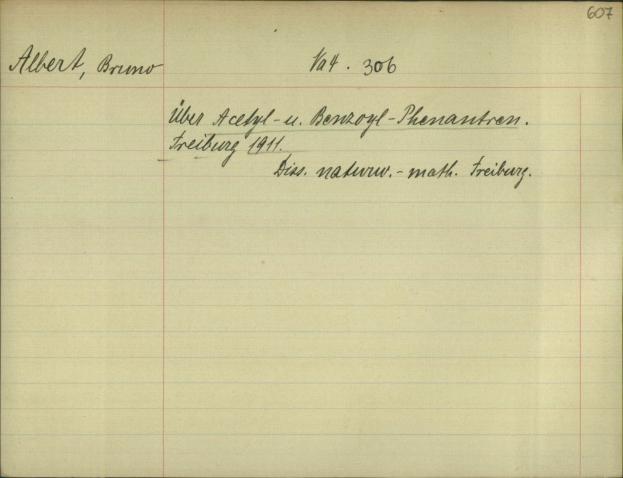 607
Albert, Bruno Va4. 306
Über Acetyl- u. Benzoyl-Phenantren.
Freiburg 1911.
Diss. naturw.-math. Freiburg.